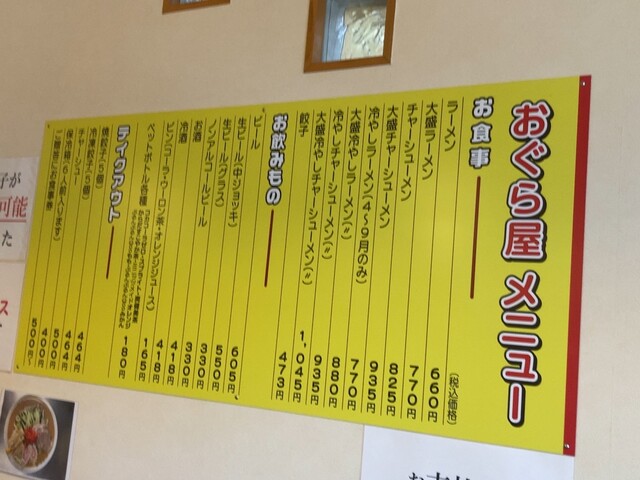 おぐら屋 メニュー
お食事
(税込価格)
ラーメン 660円
大盛ラーメン 770円
チャーシューメン 825円
大盛チャーシューメン 935円
冷やしラーメン(4〜9月のみ) 770円
大盛冷やしラーメン(〃) 880円
冷やしチャーシューメン(〃) 935円
大盛冷やしチャーシューメン(〃) 1,045円
餃子 473円
お飲みもの
ビール 605円
生ビール(中ジョッキ) 550円
生ビール(グラス) 330円
ノンアルコールビール 330円
お酒 418円
冷酒 418円
ビン(コーラ・ウーロン茶・オレンジジュース) 165円
ペットボトル各種 180円
テイクアウト
焼餃子(6個) 464円
冷凍餃子(6個) 464円
チャーシュー 500円
保冷箱(6人前入ります) 400円
ご贈答にお食事券 500円〜
子が
可能
た
ス